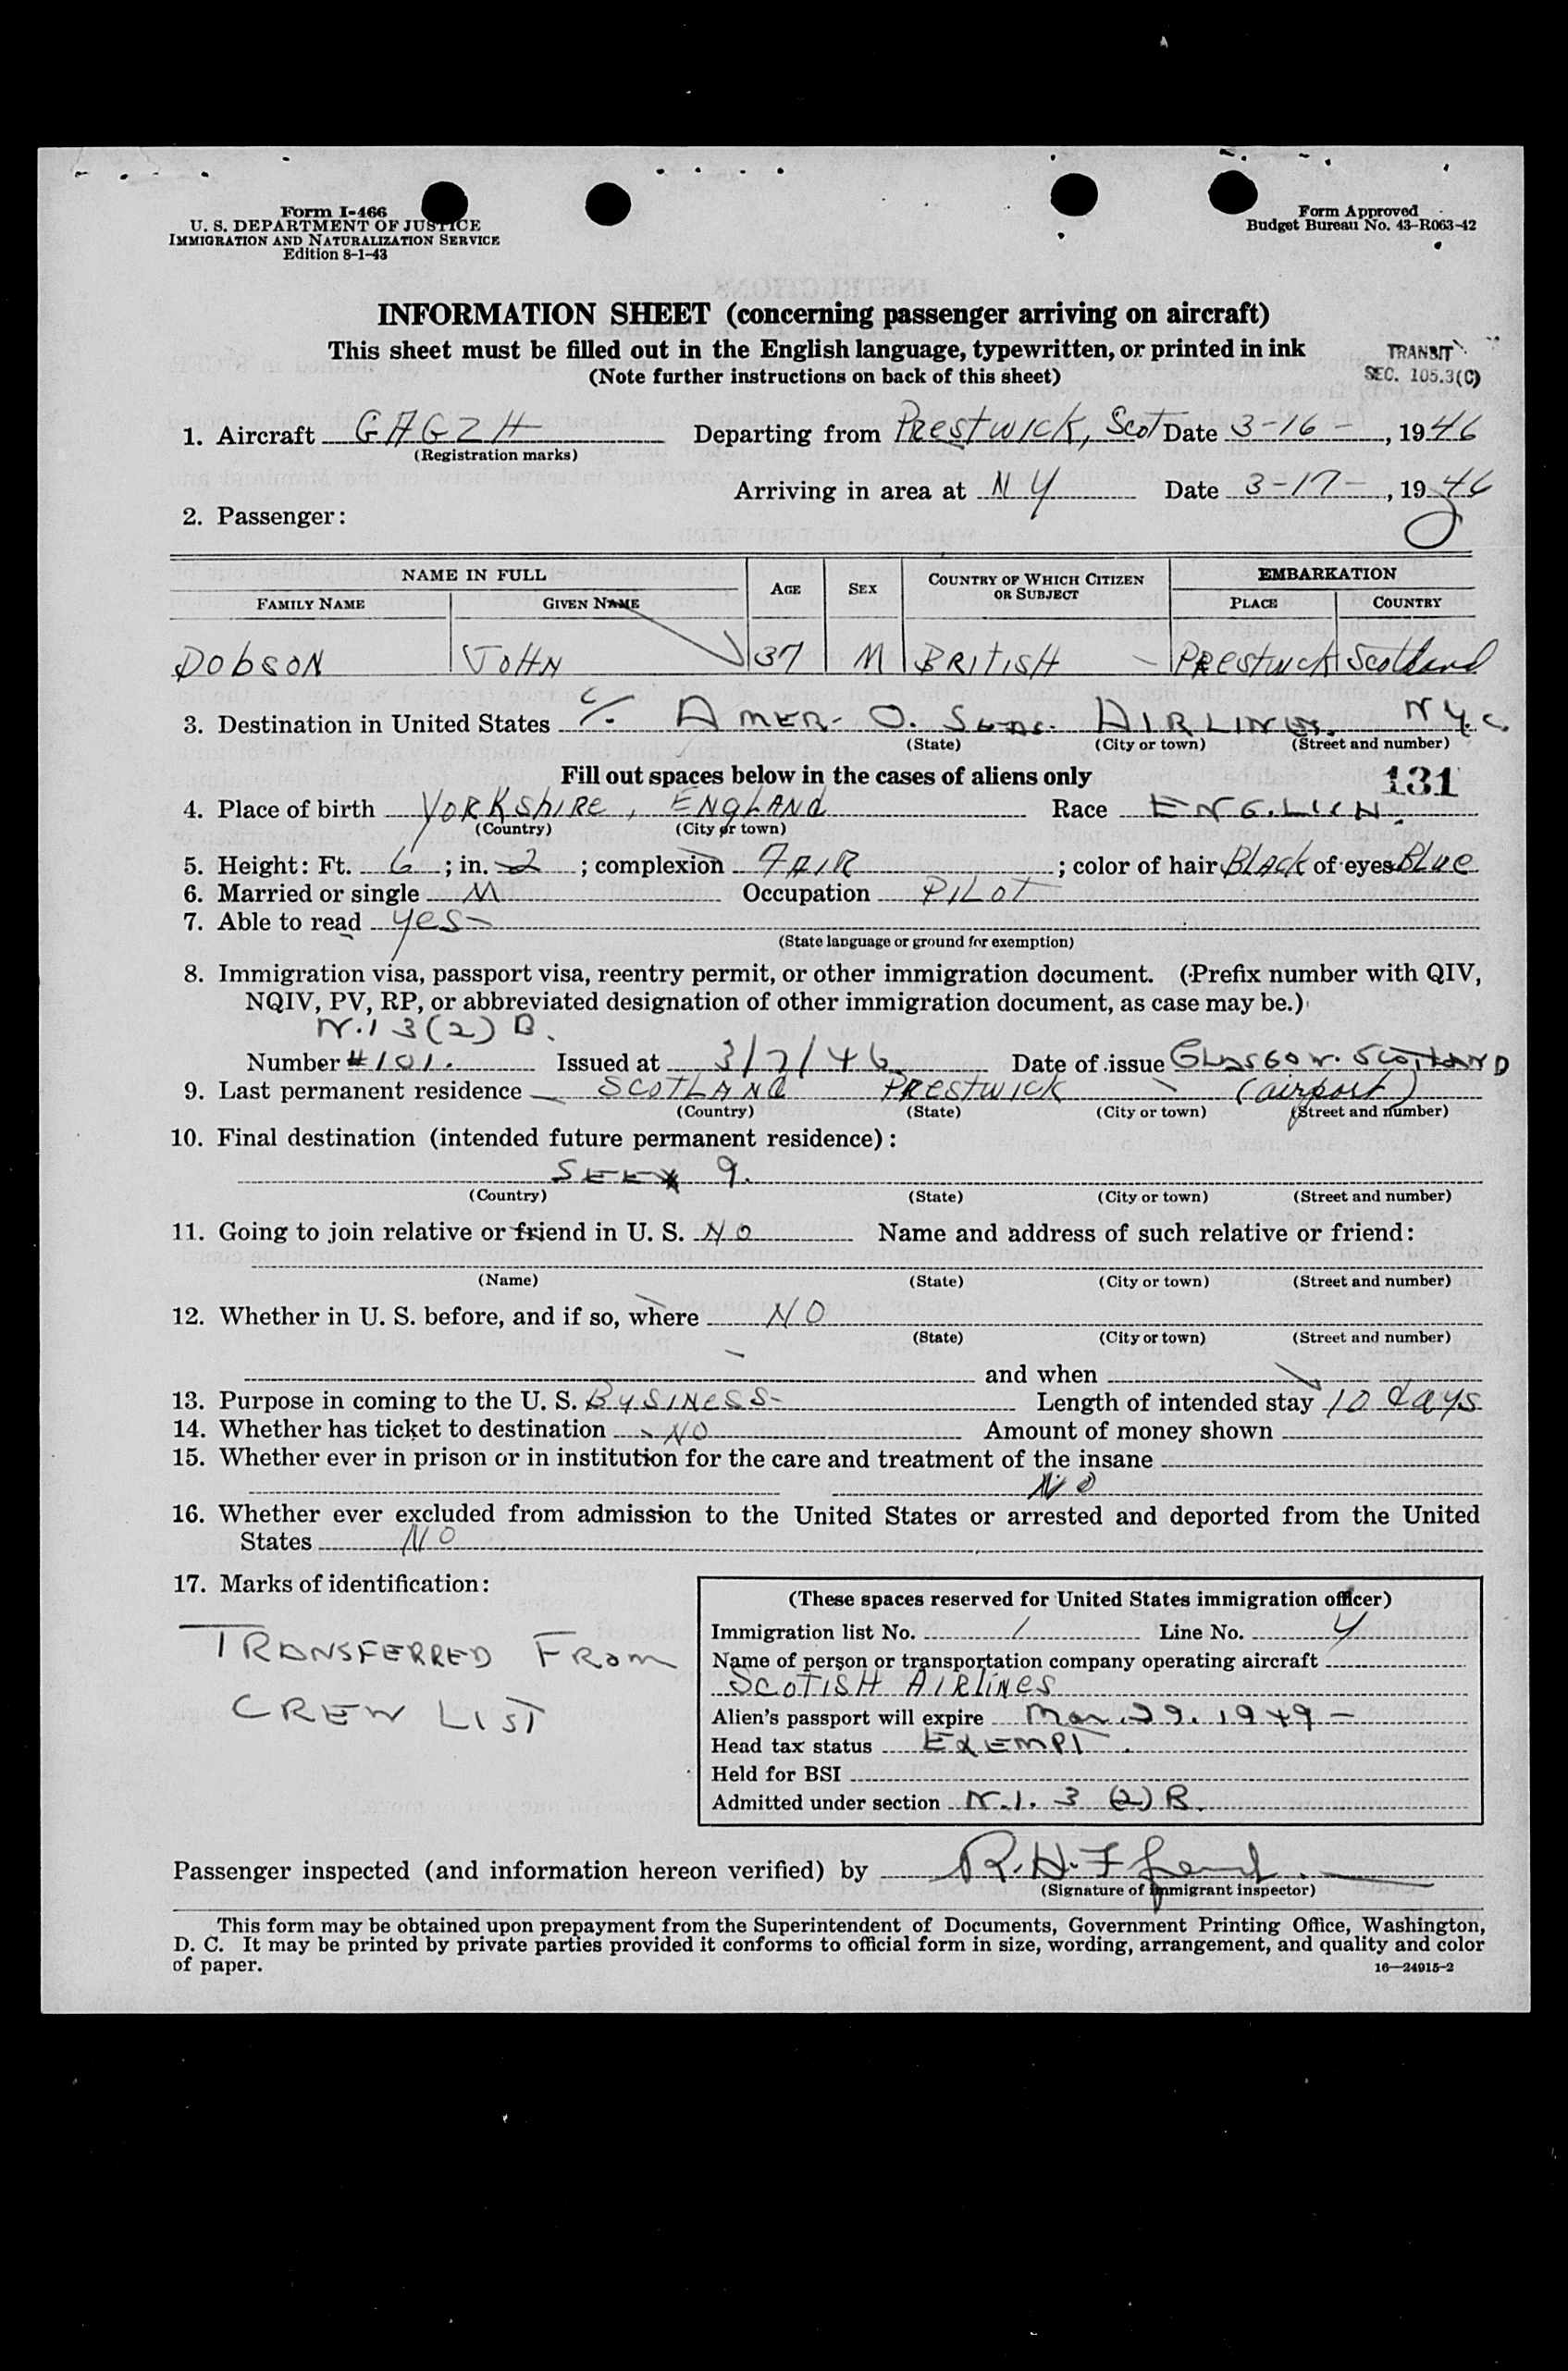 Form I-466
U. S. DEPARTMENT OF JUSTICE
IMMIGRATION AND NATURALIZATION SERVICE
Edition 8-1-43
Form Approved
Budget Bureau No. 43-R063-42
INFORMATION SHEET (concerning passenger arriving on aircraft)
This sheet must be filled out in the English language, typewritten, or printed in ink
(Note further instructions on back of this sheet)
TRANSIT
SEC. 105.3(C)
1. Aircraft GAGZH Departing from Prestwick, Scot Date 3-16-, 1946
(Registration marks)
Arriving in area at NY Date 3-17-, 1946
2. Passenger:
NAME IN FULL AGE SEX COUNTRY OF WHICH CITIZEN OR SUBJECT EMBARKATION
FAMILY NAME GIVEN NAME PLACE COUNTRY
DobsoN JOHN 37 M BRITISH PRestwick Scotland
3. Destination in United States c/o AMER. O. AIRLINES. NY.C.
(State) (City or town) (Street and number)
Fill out spaces below in the cases of aliens only 131
4. Place of birth YORKShIRE, ENGLANd Race ENGLISH.
(Country) (City or town)
5. Height: Ft. 6; in. 2; complexion FAIR; color of hair BLAck of eyes BLue
6. Married or single M Occupation PILOT
7. Able to read yes-
(State language or ground for exemption)
8. Immigration visa, passport visa, reentry permit, or other immigration document. (Prefix number with QIV,
NQIV, PV, RP, or abbreviated designation of other immigration document, as case may be.)
N.I 3(2) B.
Number #101. Issued at 3/7/46 Date of issue GLASGOW. SCOTLAND
9. Last permanent residence SCOTLANd PRESTWICK (airport)
(Country) (State) (City or town) (Street and number)
10. Final destination (intended future permanent residence):
SEE 9.
(Country) (State) (City or town) (Street and number)
11. Going to join relative or friend in U. S. NO Name and address of such relative or friend:
(Name) (State) (City or town) (Street and number)
12. Whether in U. S. before, and if so, where NO
(State) (City or town) (Street and number)
and when
13. Purpose in coming to the U. S. BUSINESS- Length of intended stay 10 days
14. Whether has ticket to destination NO Amount of money shown
15. Whether ever in prison or in institution for the care and treatment of the insane
NO
16. Whether ever excluded from admission to the United States or arrested and deported from the United
States NO
17. Marks of identification:
TRANSFERRED FROM
CREW LIST
(These spaces reserved for United States immigration officer)
Immigration list No. 1 Line No. 4
Name of person or transportation company operating aircraft
SCOTISH AIRLINES
Alien's passport will expire Mar. 29. 1949-
Head tax status EXEMPT.
Held for BSI
Admitted under section N.I. 3 (2) B.
Passenger inspected (and information hereon verified) by R.H.
(Signature of immigrant inspector)
This form may be obtained upon prepayment from the Superintendent of Documents, Government Printing Office, Washington,
D. C. It may be printed by private parties provided it conforms to official form in size, wording, arrangement, and quality and color
of paper.
16—24915-2